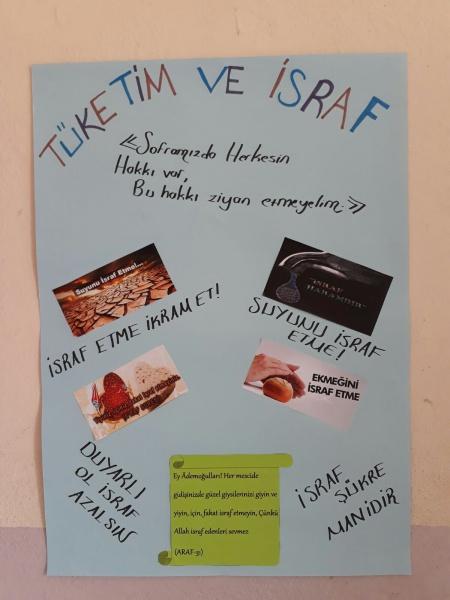 TÜKETİM VE İSRAF
«Soframızda Herkesin
Hakkı var,
Bu hakkı ziyan etmeyelim.»
Suyunu İsraf Etme!...
"İSRAF
HARAMDIR"
İSRAF ETME İKRAM ET!
SUYUNU İSRAF
ETME!
EKMEĞİNİ
İSRAF ETME
DUYARLI
OL İSRAF
AZALSIN
Ey Âdemoğulları! Her mescide
gidişinizde güzel giysilerinizi giyin ve
yiyin, için, fakat israf etmeyin, Çünkü
Allah israf edenleri sevmez
(ARAF-31)
İSRAF
ŞÜKRE
MANİDİR